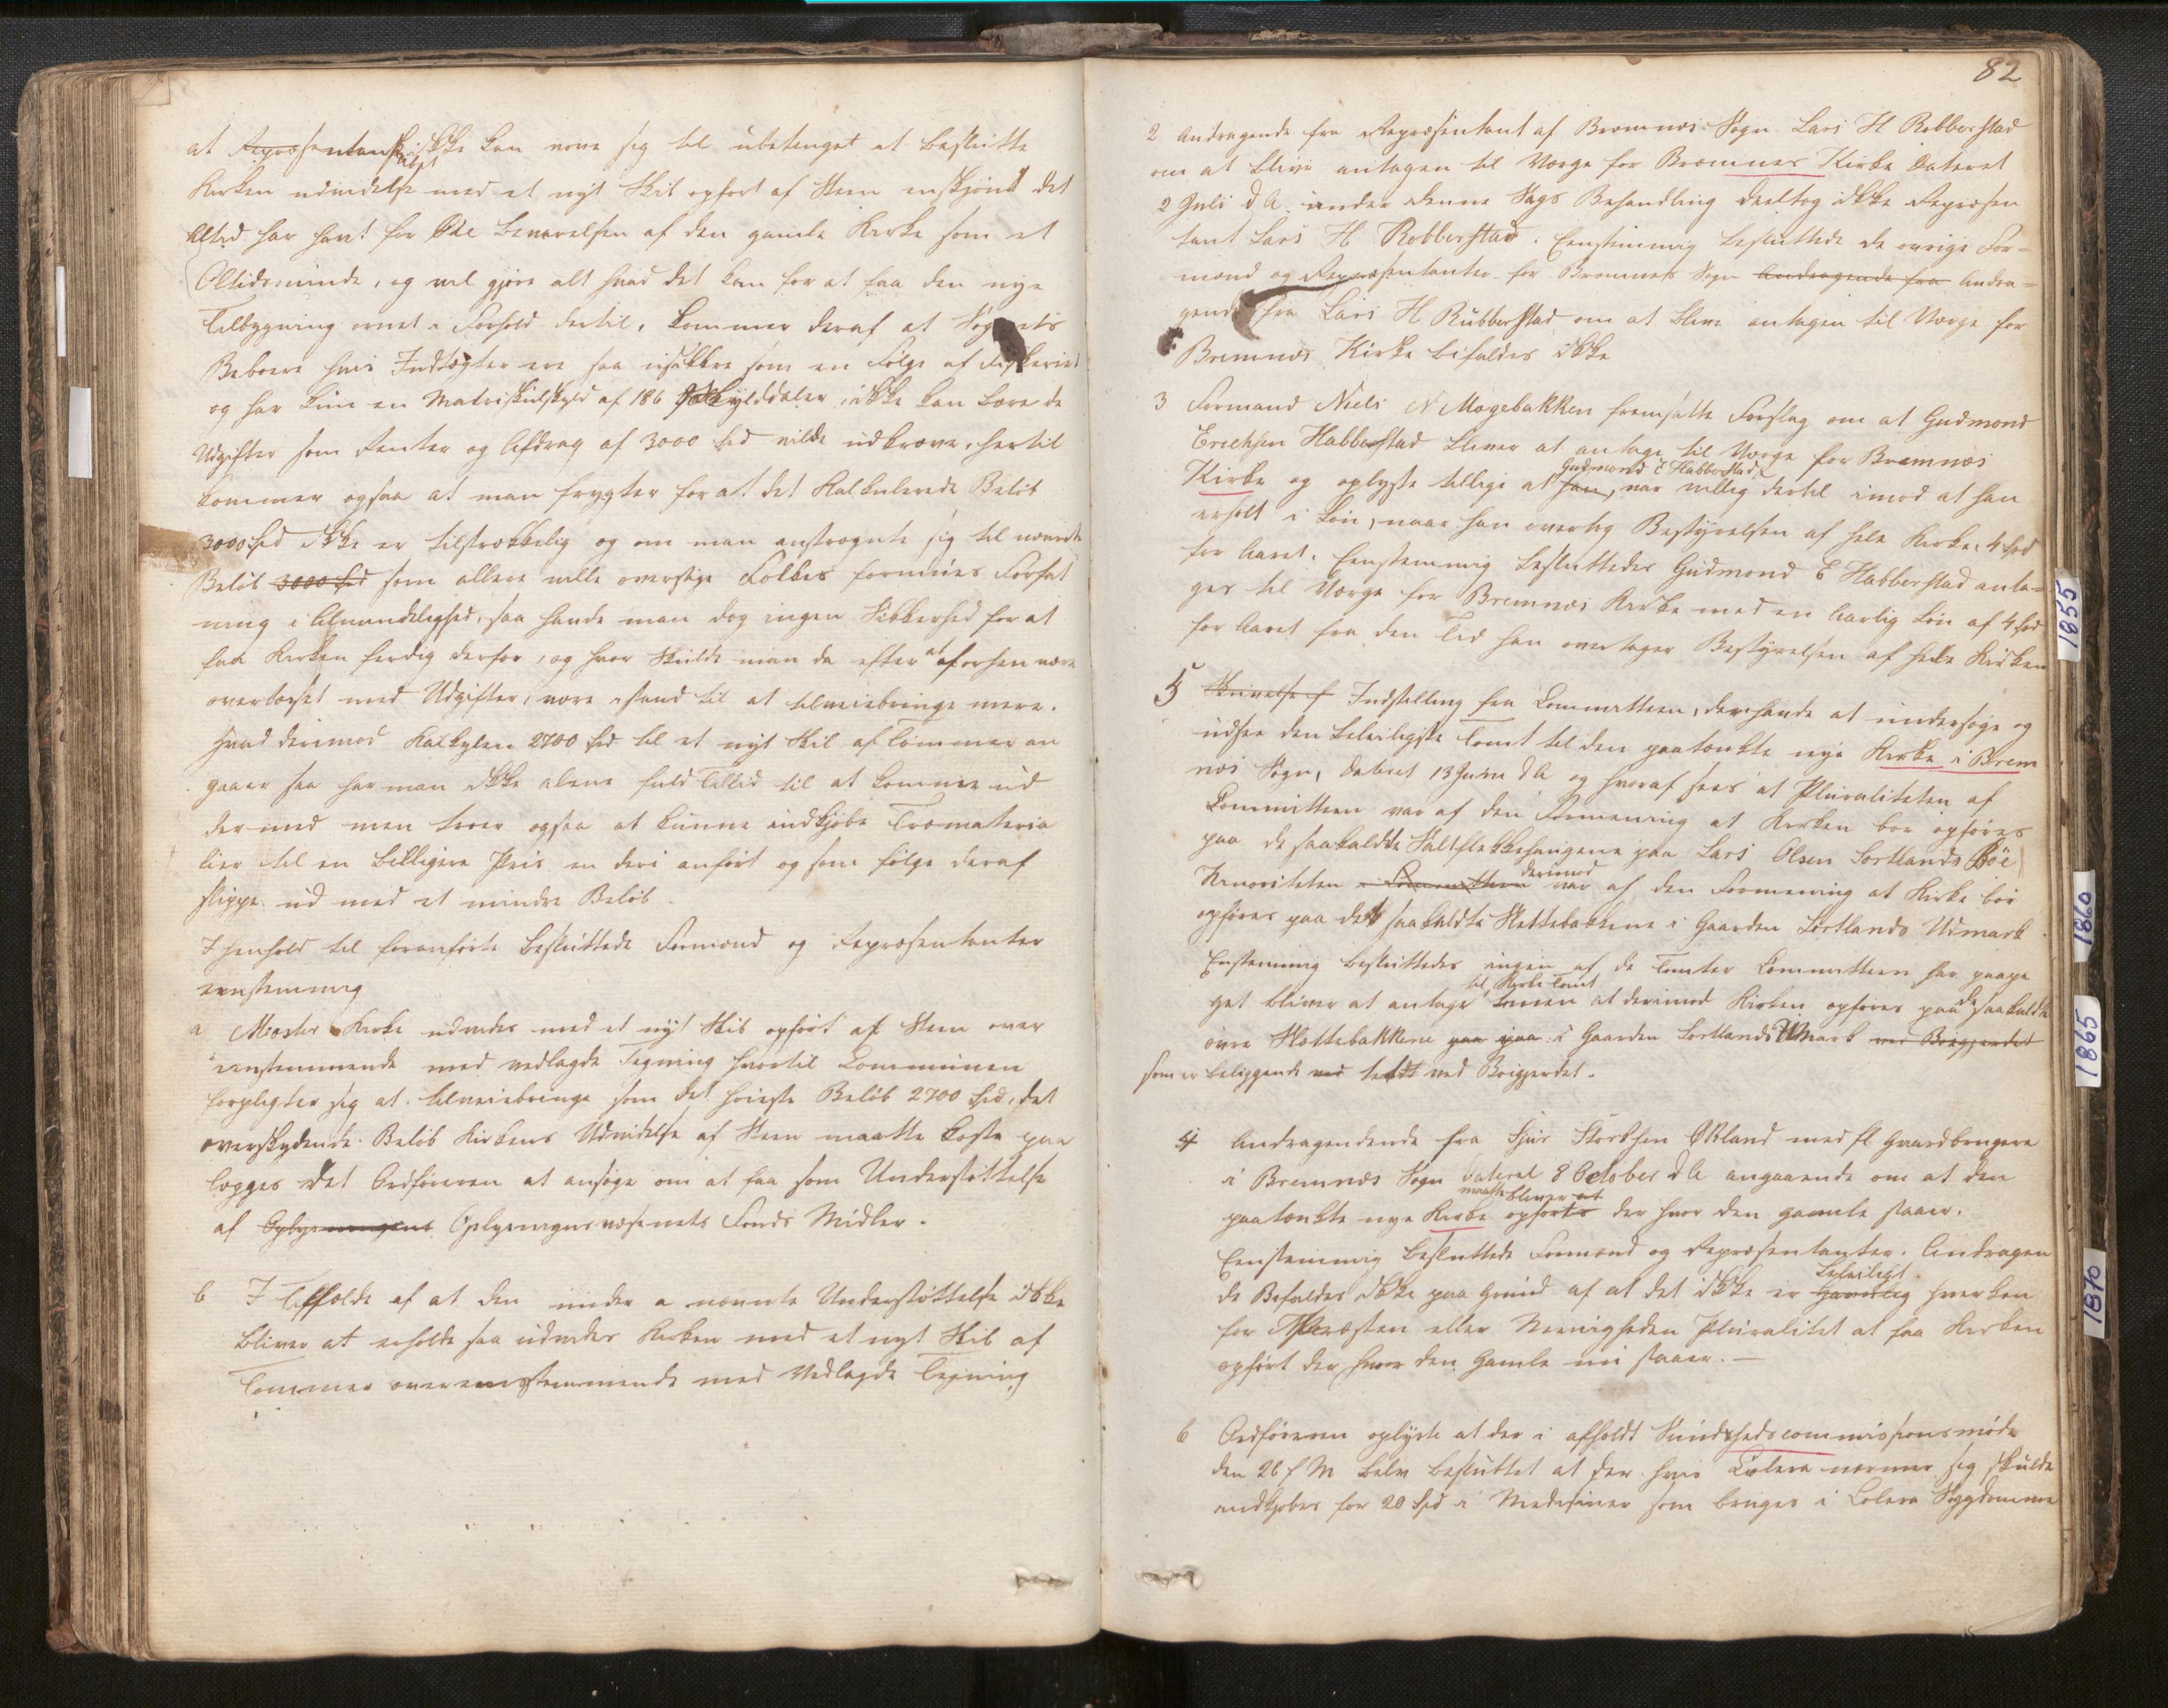 at Repræsentantsk ikke kan vove sig til ubetinget at beslutte
Kirken udvidelse med et nyt Skib opført af Steen enskjønt det
altid har havt for Øie bevarelsen af den gamle Kirke som et
Oltidsminde, og vel gjøre alt hvad det kan for at faa den nye
Tilbygning ernet i Forhold dertil, kommer deraf at Sognets
Beboere hvis Indtægter ere saa usikkre som en Følge af Fiskeriet
og har kun en Matriskulskyld af 186 Skylddaler ikke kan bære de
Udgifter som Renter og Afdrag af 3000 Spd vilde udkræve, hertil
kommer ogsaa at man frygter for at det Kalkulerede Beløb
3000 Spd ikke er tilstrækkelig og om man anstrengte sig til nævnte
Beløb 3000 Spd som allere ville overstige Folkes formues Forfat
ning i Almindelighed, saa havde man dog ingen Sikkerhed for at
faa Kirken ferdig derfor, og hvor skulde man da efter at forhen være
overlæsset med Udgifter, være istand til at tilveiebringe mere.
Hvad derimod Kalkylen 2700 Spd til et nyt Skib af Tømmer an
gaaer saa har man ikke alene fuld Tillid til at komme ud
dermed men troer ogsaa at kunne indkjøbe Træmateria
lier til en billigere Pris en deri anført og som følge deraf
slippe ud med et mindre Beløb.
I henhold til foranførte besluttede Formænd og Repræsentanter
eenstemmig
a Moster Kirke udvides med et nyt Skib opført af Steen over
eensstemmende med vedlagde Tegning hvortil Communen
forpligter sig at tilveiebringe som det høieste Beløb 2700 Spd, det
overskydende Beløb Kirkens Udvidelse af Steen maatte koste paa
lægges det Ordføreren at ansøge om at faa som Understøttelse
af Oplysningens Oplysningsvæsenets Fonds Midler.
b I Tilfælde af at den under a nævnte Understøttelse ikke
bliver at erholde saa udvides Kirken med et nyt Skib af
Tømmer overensstemmende med Vedlagde Tegning
82
2 Andragende fra Repræsentant af Bremnæs Sogn Lars H Robberstad
om at blive antagen til Værge for Bremnes Kirke dateret
2 Juli d A. under denne Sags Behandling deeltog ikke Repræsen
tant Lars H Robberstad. Eenstemmig besluttede de øvrige For=
mænd og Repræsentanter for Bremnæs Sogn Andragende fra Andra=
gende fra Lars H Rubberstad om at blive antagen til Værge for
Bremnæs Kirke bifaldes ikke
3 Formand Niels N Mogebakken fremsatte Forslag om at Gudmond
Erichsen Habberstad bliver at antage til Værge for Bremnæs
Kirke og oplyste tillige at han, Gudmond E Habberstad var villig dertil imod at han
erholt i Løn, naar han overtog Bestyrelsen af hele Kirke, 4 Spd
for Aaret. Eenstemmig besluttedes Gudmond E Habberstad anta=
ges til Værge for Bremnæs Kirke med en Aarlig Løn af 4 Spd
for Aaret fra den Tid han overtager Bestyrelsen af hele Kirken
5 Skrivelse f Indstilling fra Committeen, der havde at undersøge og
udsee den beleiligste Tomt til den paatænkte nye Kirke i Brem
næs Sogn, dateret 13 Juni d A og hvoraf sees at Pluraliteten af
Committeen var af den Formening at Kirken bør opføres
paa de saakaldte Saltflekkehaugene paa Lars Olsen Sortlands Bøe
Minoriteten i Committeen derimod var af den Formening at Kirke bør
opføres paa det saakaldte Slettebakkene i Gaarden Sortlands Udmark.
Enstemmig besluttedes ingen af de Tomter Committeen har paape
get bliver at antage til Kirke Tomt men at derimod Kirken opføres paa de saakaldte
øvre Slettebakkene paa paa i Gaarden Sortlands Udmark ved Boegjerdet
som er beliggende ved tædt ved Bøigjerdet.
4 Andragendende fra Sjur Størksen Økland med fl Gaardbrugere
i Bremnæs Sogn dateret 8 October d A angaaende om at den
paatænkte nye Kirke maatte bliver at opførts der hvor den gamle staaer.
Eenstemmig besluttede Formænd og Repræsentanter. Andragen
de Bifaldes ikke paa Grund af at det ikke er Gavnlig beleiligt hverken
for Præsten eller Menigheden Pluralitet at faa Kirken
opført der hvor den Gamle nu staaer. —
6 Ordføreren oplyste at der i afholdt Sundhedscommissionsmøde
den 26 f M blev besluttet at der hvis Colera nærmer sig skulde
indkjøbes for 20 Spd i Medisiner som bruges i Colera Sygdomme
1855
1860
1865
1870